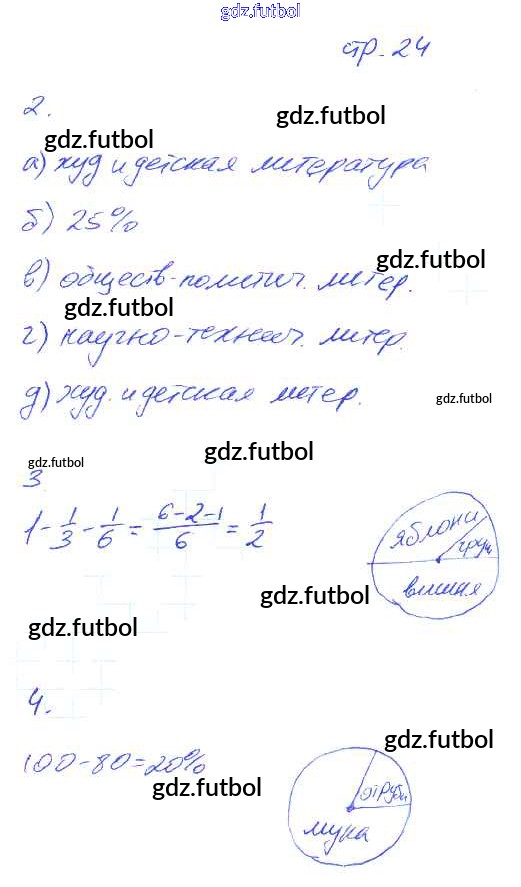 gdz.futbol
стр. 24
2.
gdz.futbol
gdz.futbol
а) худ и детская литература
б) 25%
gdz.futbol
в) обществ-политич. литер.
gdz.futbol
г) научно-технич. литер.
д) худ. и детская литер.
gdz.futbol
gdz.futbol
gdz.futbol
3
1 - 1/3 - 1/6 = (6-2-1)/6 = 1/2
яблони
груш
вишня
gdz.futbol
gdz.futbol
4.
100-80=20%
gdz.futbol
gdz.futbol
отруби
мука